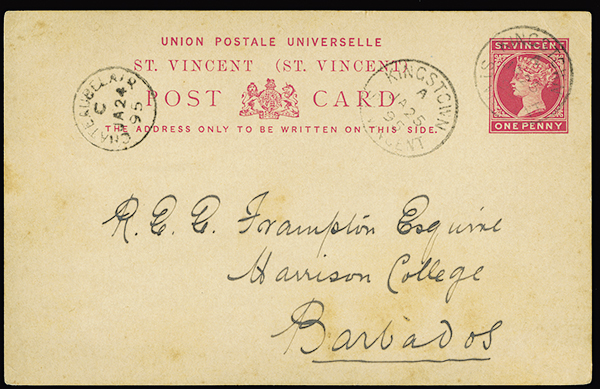 UNION POSTALE UNIVERSELLE
ST. VINCENT (ST. VINCENT)
POST CARD
THE ADDRESS ONLY TO BE WRITTEN ON THIS SIDE.
ST. VINCENT
ONE PENNY
CHATEAUBELAIR
C
JA 24
95
KINGSTOWN
A
JA 25
95
ST VINCENT
KINGSTOWN
R. E. E. Frampton Esquire
Harrison College
Barbados